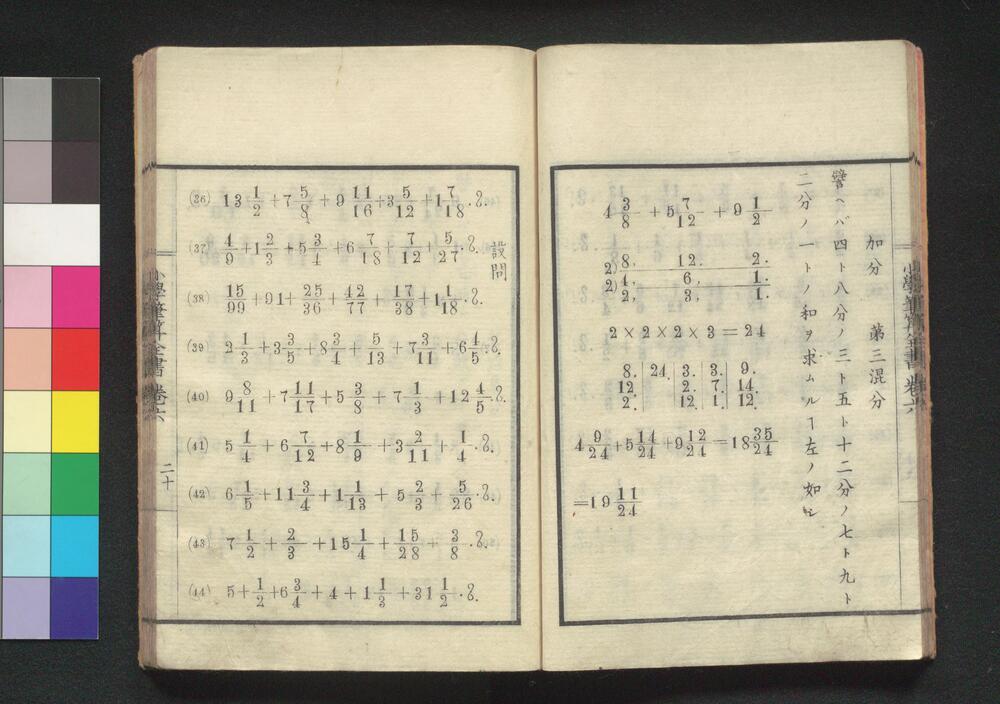 加分　第三混分
譬ヘバ四ト八分ノ三ト五ト十二分ノ七ト九ト
二分ノ一トノ和ヲ求ムルヿ左ノ如シ
4 3/8 + 5 7/12 + 9 1/2
2) 8. 12. 2.
2) 4, 6, 1.
2, 3, 1.
2 × 2 × 2 × 3 = 24
8. | 24. | 3. | 3. | 9.
12. | 2. | 7. | 14.
2. | 12. | 1. | 12.
4 9/24 + 5 14/24 + 9 12/24 = 18 35/24
= 19 11/24
小學筆算全書 卷六
設問
(36) 13 1/2 + 7 5/8 + 9 11/16 + 3 5/12 + 1 7/18 .?.
(37) 4/9 + 1 2/3 + 5 3/4 + 6 7/18 + 7/12 + 5/27 .?.
(38) 15/99 + 91 + 25/36 + 42/77 + 17/38 + 1 1/18 .?.
(39) 2 1/3 + 3 3/5 + 8 3/4 + 5/13 + 7 3/11 + 6 4/5 .?.
(40) 9 8/11 + 7 11/17 + 5 3/8 + 7 1/3 + 12 4/5 .?.
(41) 5 1/4 + 6 7/12 + 8 1/9 + 3 2/11 + 1/4 .?.
(42) 6 1/5 + 11 3/4 + 1 1/13 + 5 2/3 + 5/26 .?.
(43) 7 1/2 + 2/3 + 15 1/4 + 15/28 + 3/8 .?.
(44) 5 + 1/2 + 6 3/4 + 4 + 1 1/3 + 31 1/2 .?.
小學筆算全書 卷六
二十